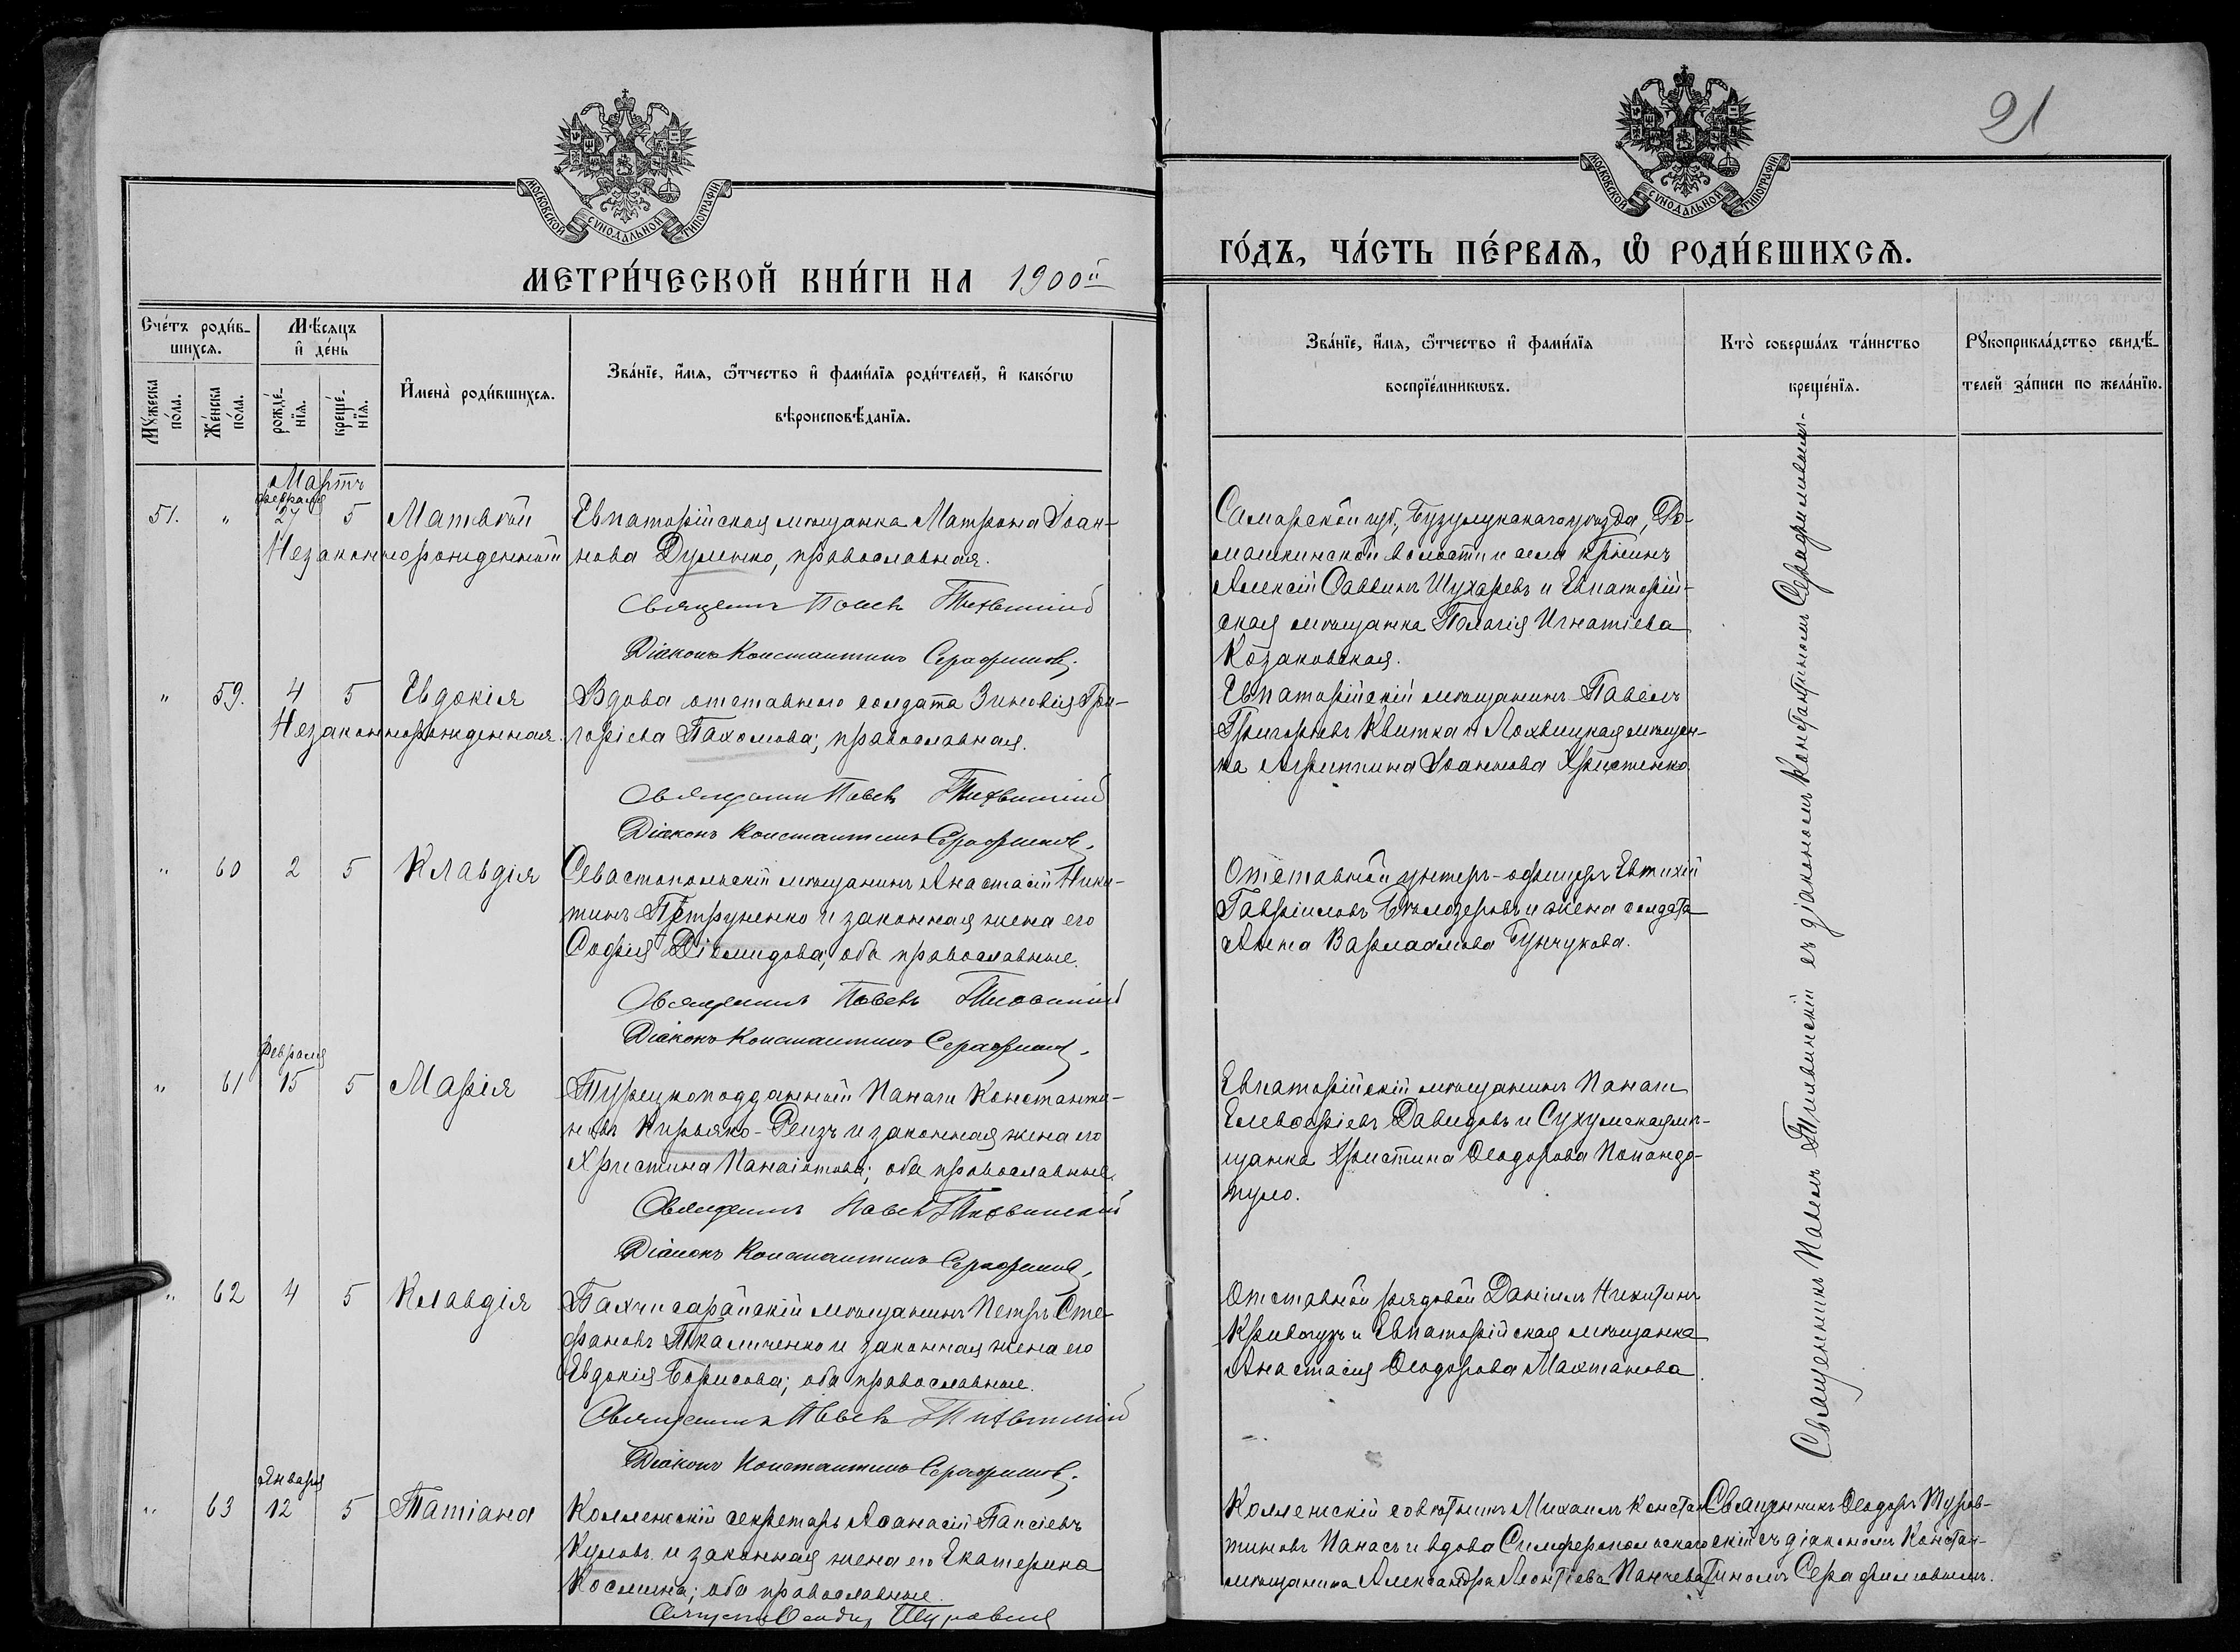 МОСКОВСКОЙ СѴНОДАЛЬНОЙ ТИПОГРАФІИ
МЕТРИ́ЧЕСКОЙ КНИ́ГИ НА 1900й
Сче́тъ роди́в-
шихсѧ.
Мѣ́сяцъ
и҆ де́нь
Мꙋ́жеска
по́ла.
Же́нска
по́ла.
рожде́-
нїѧ.
креще́-
нїѧ.
И҆мена̀ роди́вшихсѧ.
Зва́нїе, и҆́мѧ, ѻ҆́тчество и҆ фами́лїѧ роди́телей, и҆ како́гѡ
вѣроисповѣ́данїѧ.
Мартъ
51. " февраля 27 5 Матвѣй
Незаконнорожденный
Евпаторійская мѣщанка Матрона Іоан-
нова Думенко, православная.
Священникъ Павелъ Тихвинскій
Діаконъ Константинъ Серафимовъ.
" 59. 4 5 Евдокія
Незаконнорожденная.
Вдова отставного солдата Зиновія Гри-
горіева Пахомова; православная.
Священникъ Павелъ Тихвинскій
Діаконъ Константинъ Серафимовъ.
" 60 2 5 Клавдія
Севастопольскій мѣщанинъ Анастасій Ники-
тинъ Петруненко и законная жена его
Софія Діомидова; оба православные.
Священникъ Павелъ Тихвинскій
Діаконъ Константинъ Серафимовъ.
" 61 февраля 15 5 Марія
Турецкоподданный Панаги Константи-
новъ Кирьяко-Реизъ и законная жена его
Христина Панаіотова; оба православные.
Священникъ Павелъ Тихвинскій
Діаконъ Константинъ Серафимовъ.
" 62 4 5 Клавдія
Бахчисарайскій мѣщанинъ Петръ Сте-
фановъ Ткаличенко и законная жена его
Евдокія Борисова; оба православные.
Священникъ Павелъ Тихвинскій
Діаконъ Константинъ Серафимовъ.
" 63 Января 12 5 Татіана
Коллежскій секретарь Аѳанасій Паисіевъ
Кумовъ и законная жена его Екатерина
Космина; оба православные.
Священникъ Ѳеодоръ
21
МОСКОВСКОЙ СѴНОДАЛЬНОЙ ТИПОГРАФІИ
ГО́ДЪ, ЧА́СТЬ ПЕ́РВАѦ, Ѡ҆ РОДИ́ВШИХСѦ.
Зва́нїе, и҆́мѧ, ѻ҆́тчество и҆ фами́лїѧ
воспрїе́мникѡвъ.
Кто̀ соверша́лъ та́инство
креще́нїѧ.
Рꙋкоприкла́дство свидѣ́-
телей за́писи по жела́нїю.
Самарской губ., Бузулукскаго уѣзда, До-
машкинской волости и села крѣинъ
Алексій Саввинъ Шухаревъ и Евпаторій-
ская мѣщанка Пелагія Игнатіева
Козаковская.
Евпаторійскій мѣщанинъ Павелъ
Григорьевъ Квитка и Лохвицкая мѣщан-
ка Агриппина Іоаннова Христенко.
Отставной унтеръ-офицеръ Евтихій
Гавріиловъ Бѣлозеровъ и жена солдата
Анна Варлаамова Гунчукова.
Евпаторійскій мѣщанинъ Панаги
Елевѳеріевъ Давидовъ и Сухумская мѣ-
щанка Христина Ѳеодорова Попандо-
пуло.
Отставной рядовой Даніилъ Никитинъ
Кривогузъ и Евпаторійская мѣщанка
Анастасія Ѳеодорова Махтанова.
Коллежскій совѣтникъ Михаилъ Констан-
тиновъ Панасъ и вдова Симферопольскаго
мѣщанина Александра Леонтіева Панчева
Священникъ Павелъ Тихвинскій съ діакономъ Константиномъ Серафимовымъ.
Священникъ Ѳеодоръ Туров-
скій съ діакономъ Констан-
тиномъ Серафимовымъ.